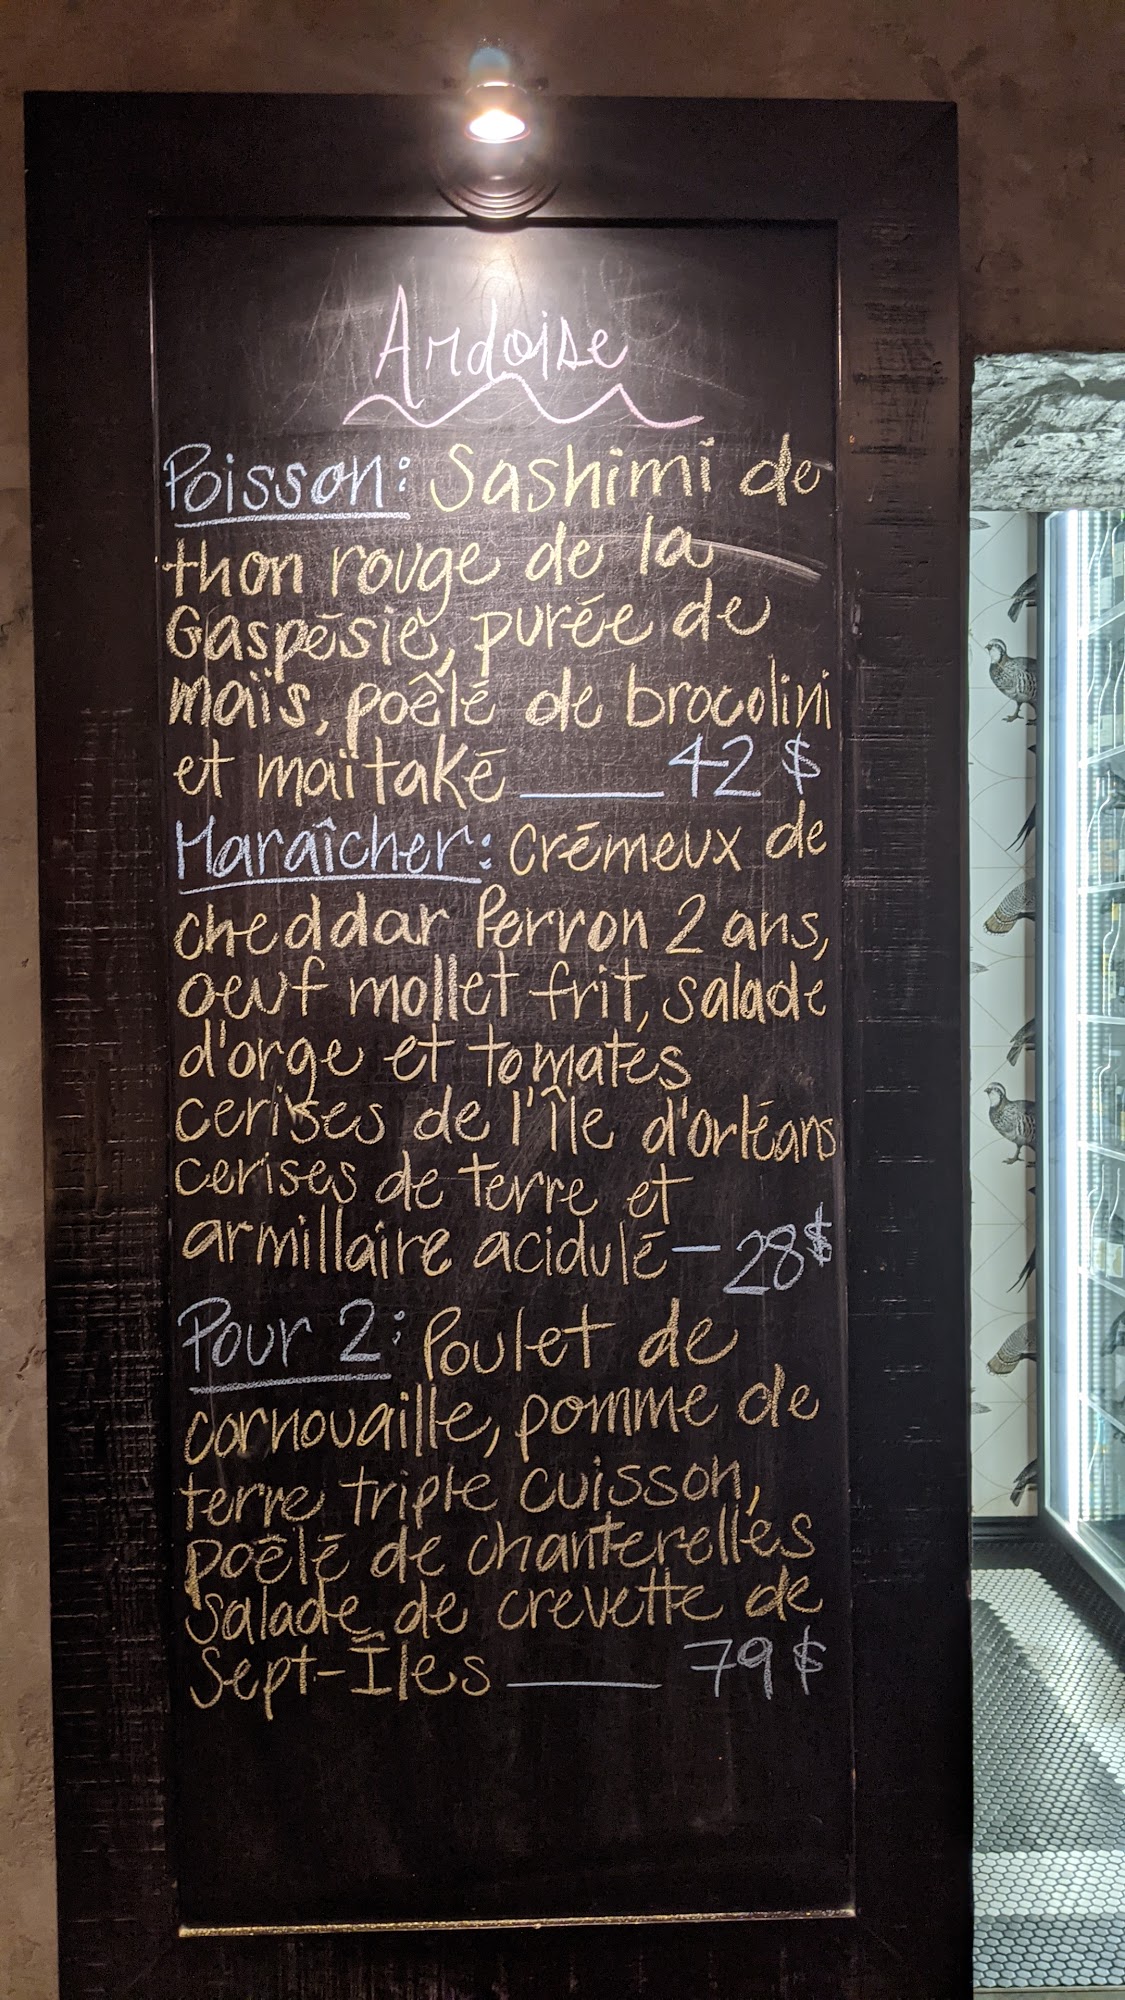 Ardoise
Poisson: Sashimi de
thon rouge de la
Gaspésie, purée de
maïs, poêlé de brocolini
et maïtaké 42 $
Maraîcher: Crémeux de
cheddar Perron 2 ans,
oeuf mollet frit, salade
d'orge et tomates
cerises de l'Île d'orléans
cerises de terre et
armillaire acidulé - 28$
Pour 2: Poulet de
cornouaille, pomme de
terre triple cuisson,
poêlé de chanterelles
salade de crevette de
Sept-Îles 79 $